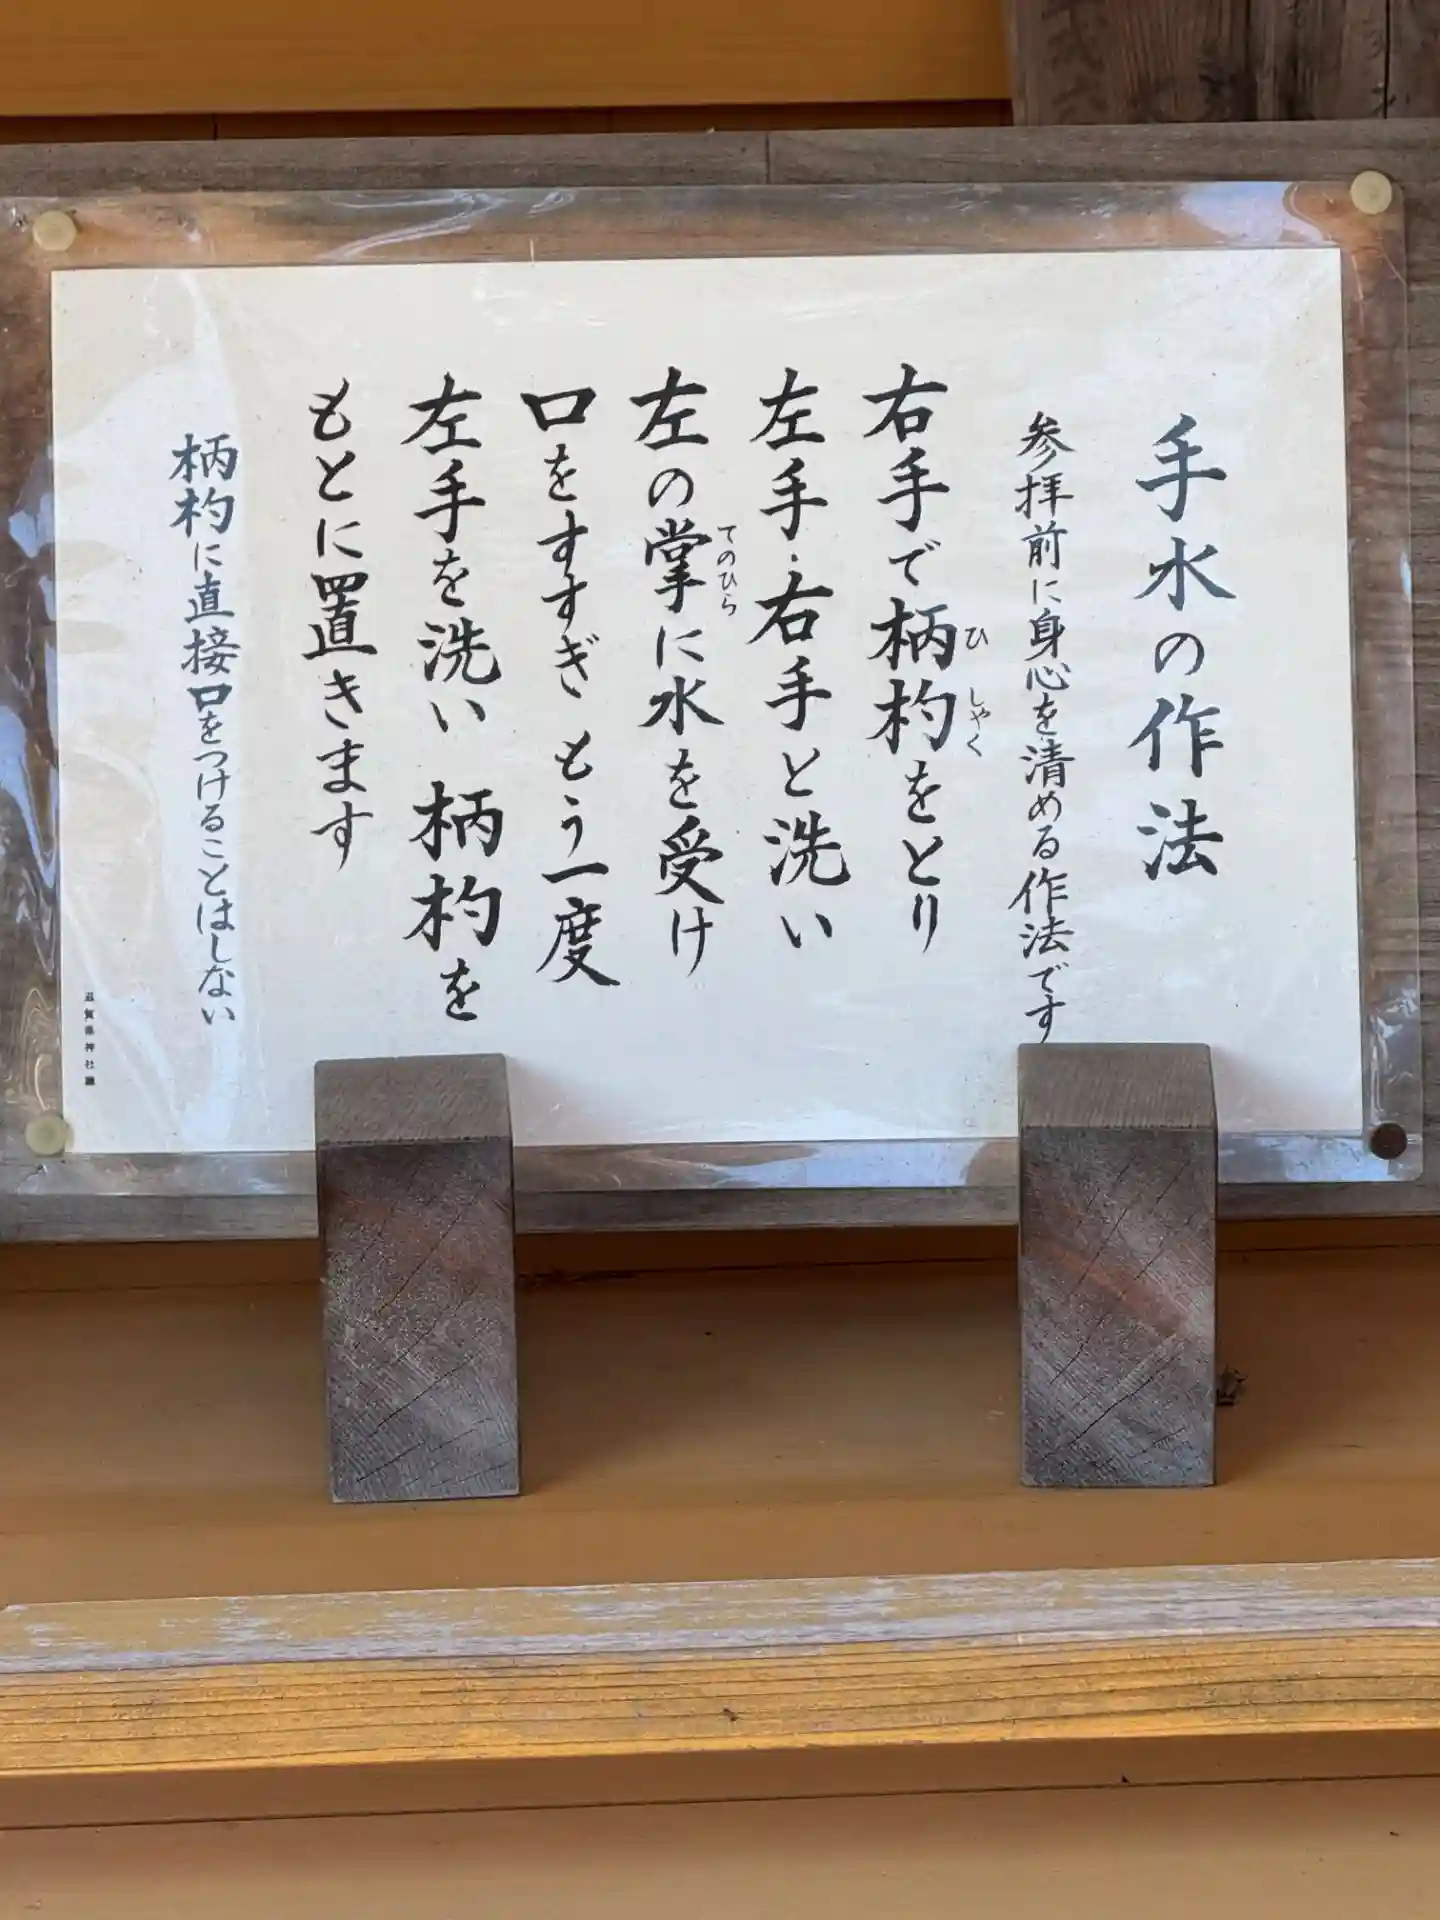 手水の作法
参拝前に身心を清める作法です
右手で柄杓をとり
ひしゃく
左手・右手と洗い
左の掌に水を受け
てのひら
口をすすぎ もう一度
左手を洗い 柄杓を
もとに置きます
柄杓に直接口をつけることはしない
滋賀県神社庁